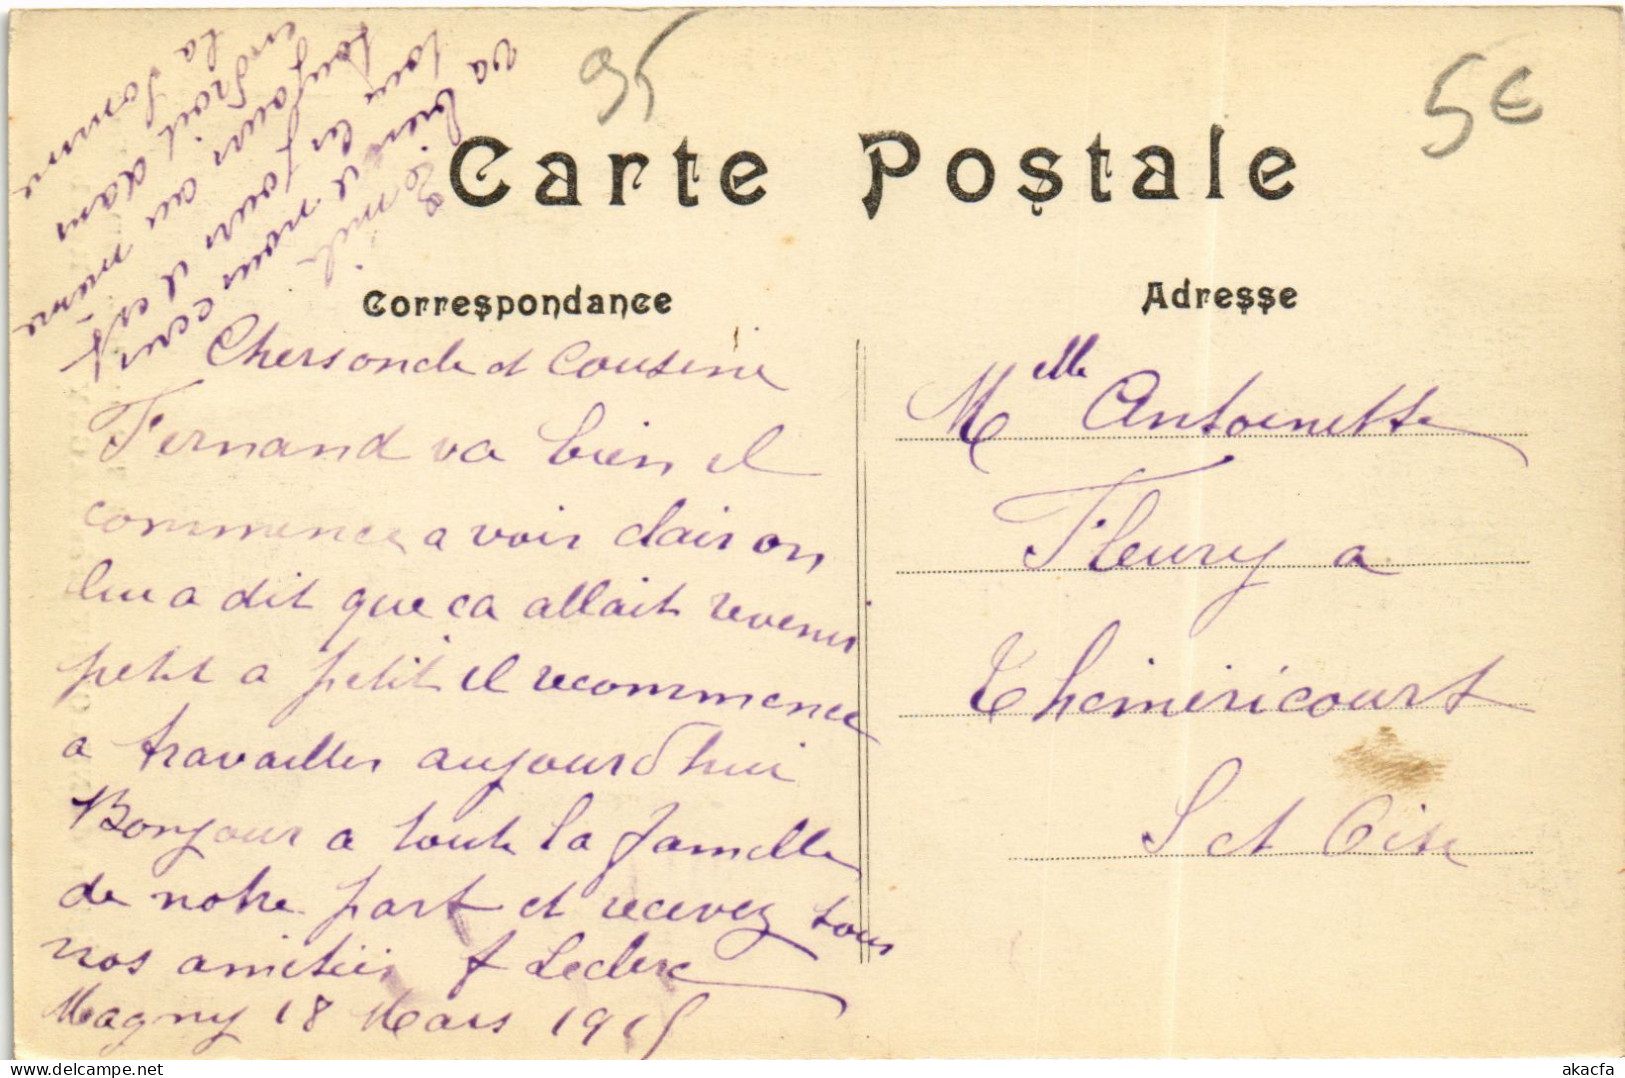 95
5€
Carte Postale
Correspondance
Adresse
Emile
va bien il nous ecris
tous les jours il est
toujours au même
endroit dans
la Somme
Chersoncle et Cousine
Fernand va bien il
commence a voir clair on
lui a dit que ca allait revenir
petit a petit il recommence
a travailler aujourd'hui
Bonjour a toute la famille
de notre part et recevez tous
nos amitiés f Leclerc
Magny 18 Mars 1915
Melle Antoinette
Fleury a
Théméricourt
S et Oise
akacfa